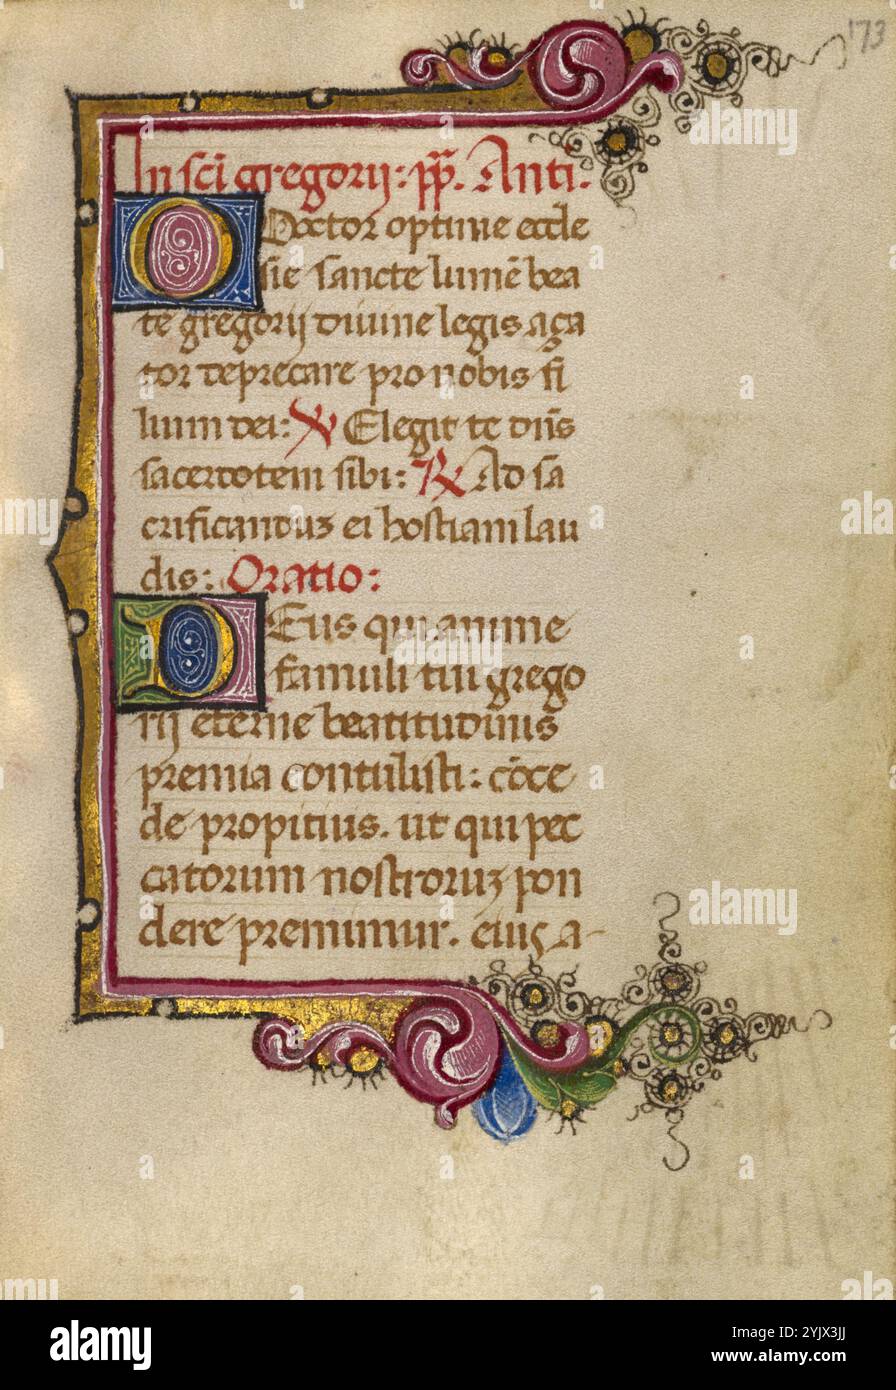 173
In sci gregorij: pp. Anti.
O Doctor optime eccle
sie sancte lumē bea
te gregorij diuine legis
tor deprecare pro nobis fi
lium dei: V Elegit te dn̄s
sacerdotem sibi: R Ad sa
crificanduz ei hostiam lau
dis: Oratio:
Deus qui anime
famuli tui grego
rij eterne beatitudinis
premia contulisti: cōce
de propitius. ut qui pec
catorum nostroruz pon
dere premimur. eius a
alamy
Image ID: 2YJX3JJ
www.alamy.com